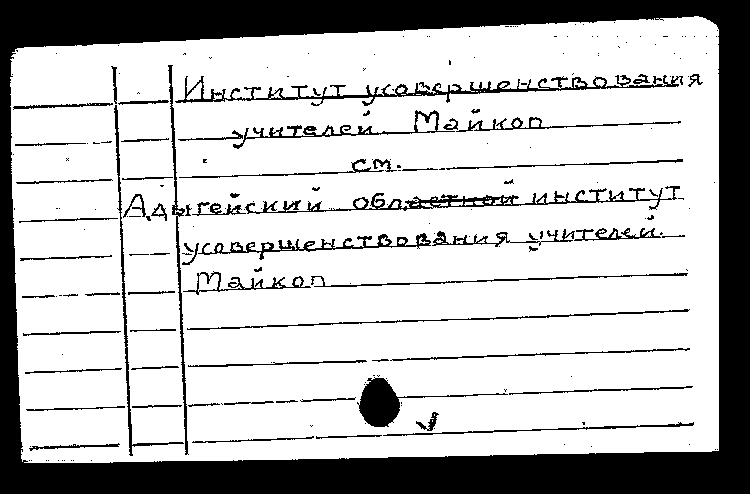 Институт усовершенствования
учителей. Майкоп
см.
Адыгейский областной институт
усовершенствования учителей.
Майкоп